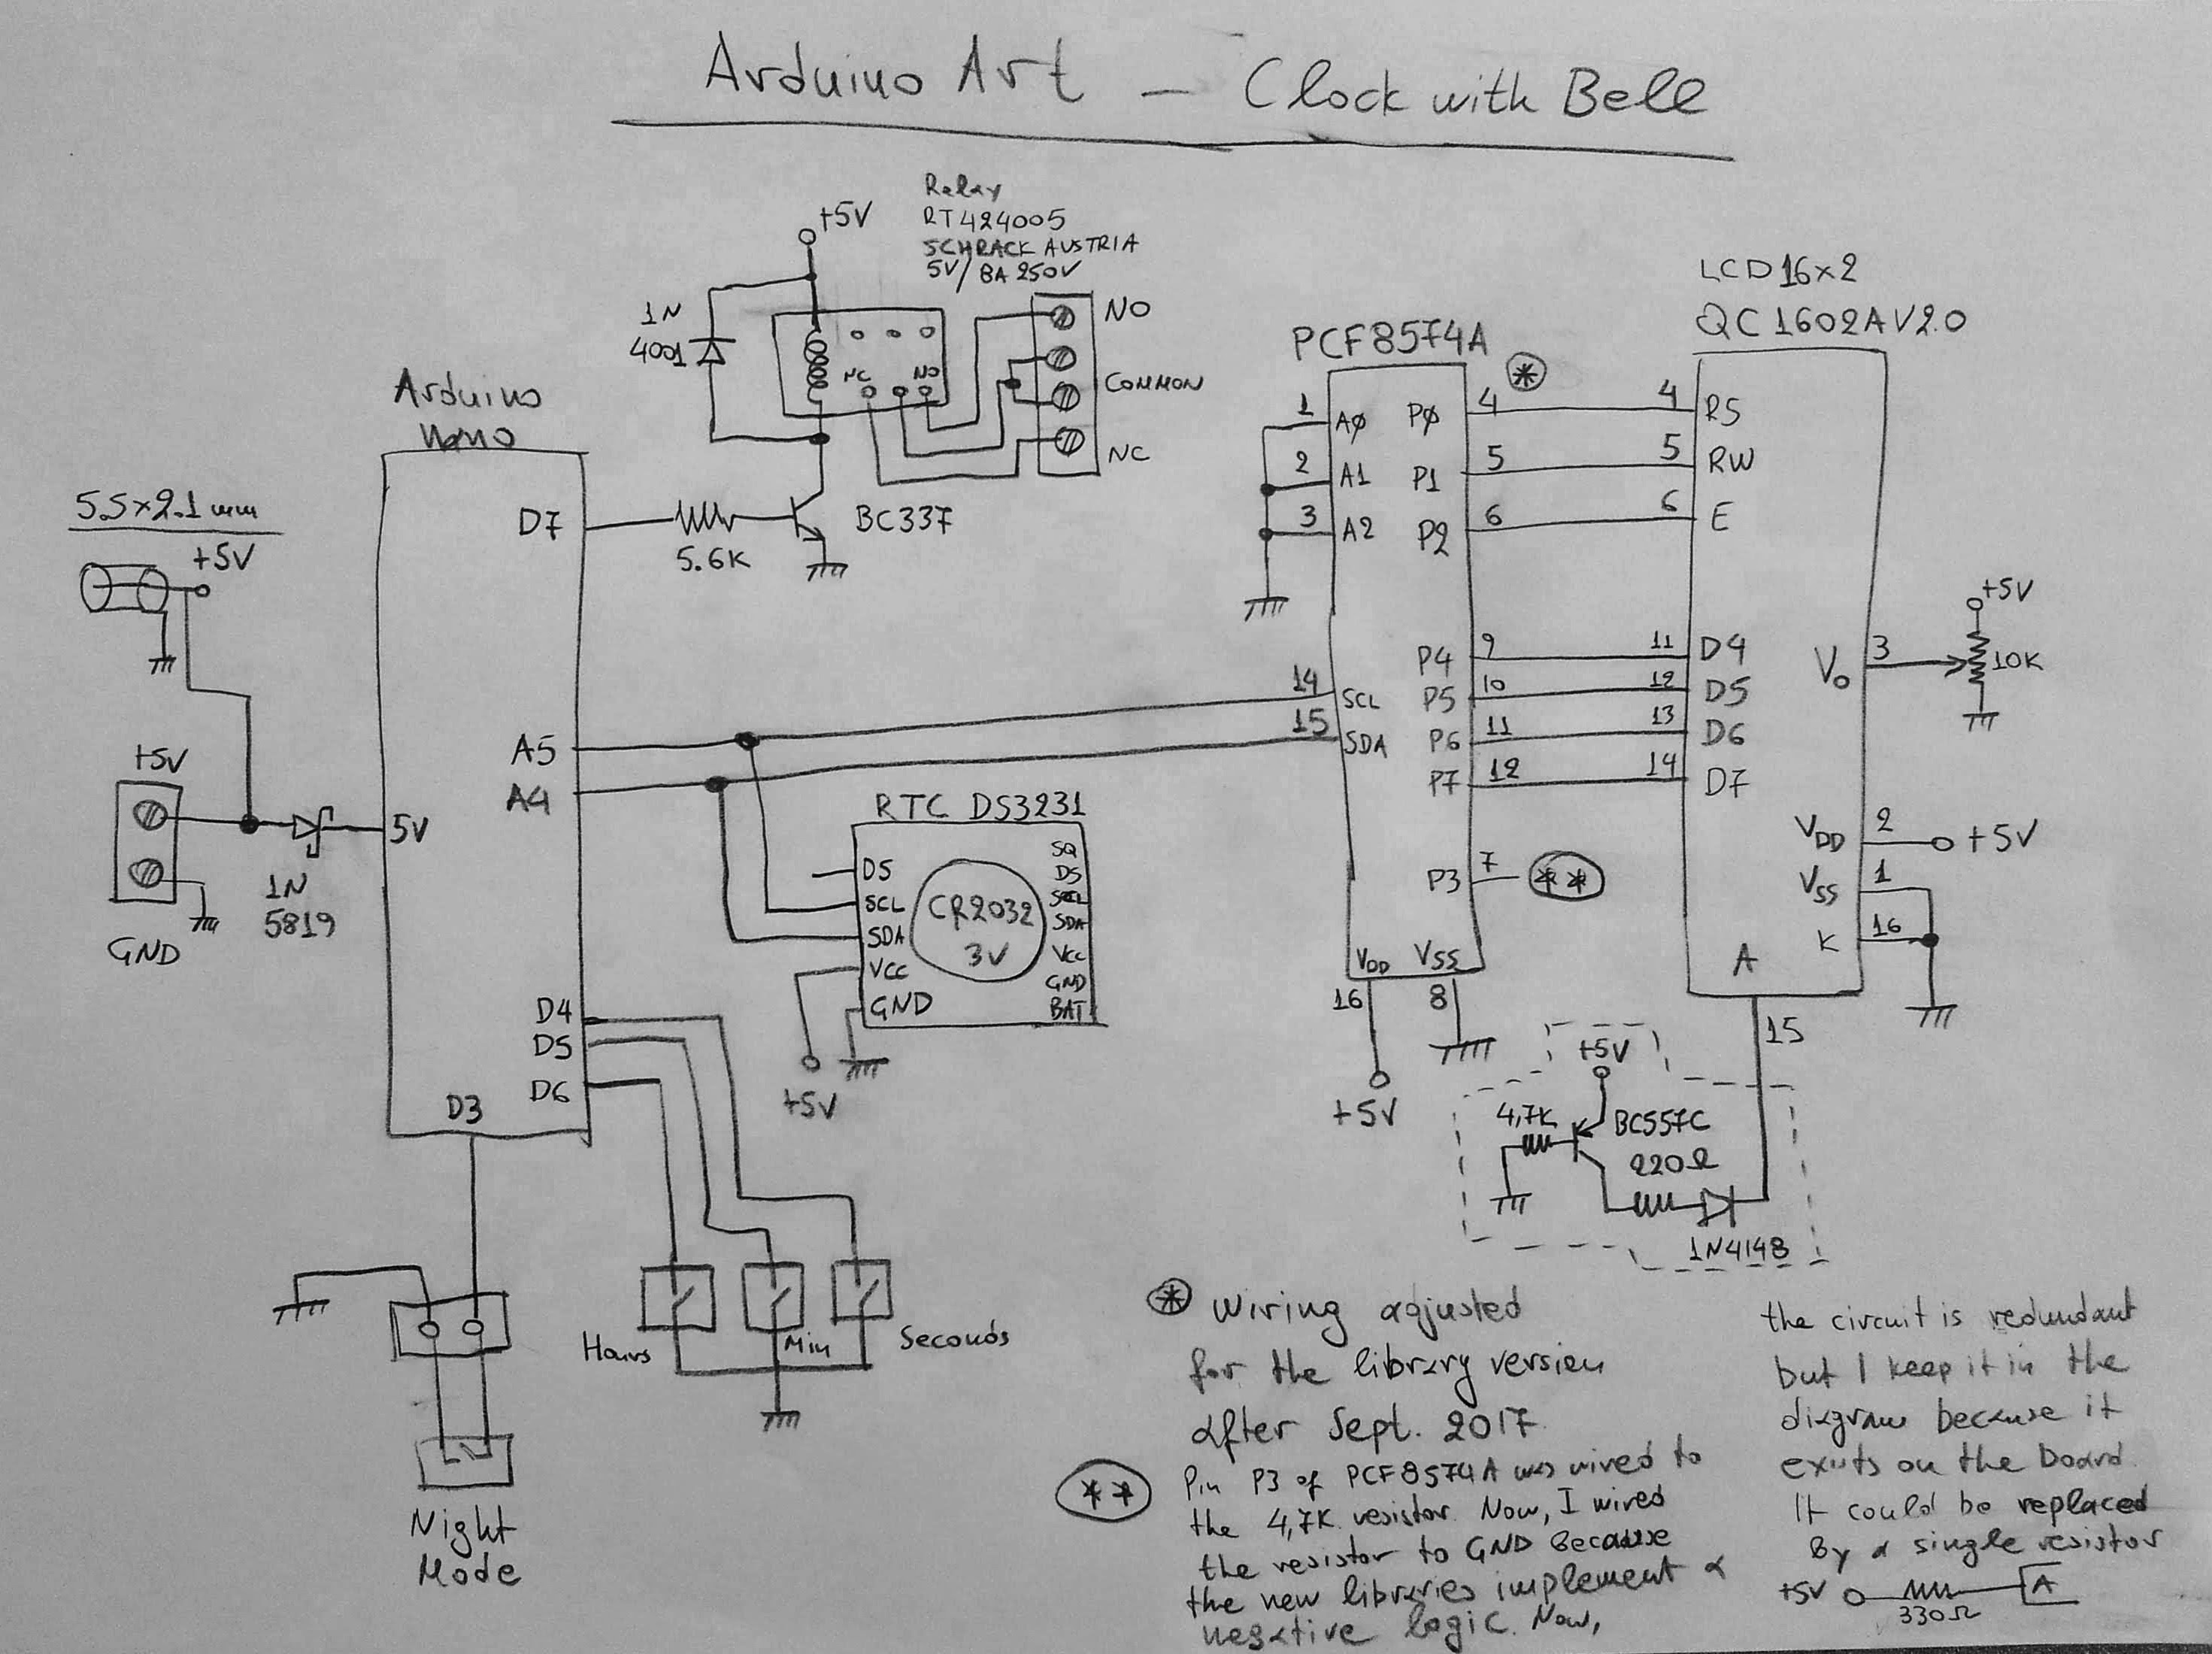 Arduino Art - Clock with Bell
Relay
RT424005
SCHRACK AUSTRIA
5V/8A 250V
+5V
1N
4001
NC
NO
NO
COMMON
NC
Arduino
Nano
D7
5.6K
BC337
5.5x2.1mm
+5V
+5V
GND
1N
5819
5V
A5
A4
D4
D5
D6
D3
RTC DS3231
DS
SCL
SDA
VCC
GND
CR2032
3V
SQ
DS
SCL
SDA
Vcc
GND
BAT
+5V
Hours
Min
Seconds
Night
Mode
PCF8574A
*
1 A0
2 A1
3 A2
14 SCL
15 SDA
P0 4
P1 5
P2 6
P4 9
P5 10
P6 11
P7 12
P3 7 **
VDD VSS
16 8
+5V
LCD16x2
QC1602AV2.0
4 RS
5 RW
6 E
11 D4
12 D5
13 D6
14 D7
Vo 3
+5V
10K
VDD 2 +5V
VSS 1
K 16
A
15
+5V
4,7K
BC557C
220Ω
1N4148
* Wiring adjusted
for the library version
after Sept. 2017
** Pin P3 of PCF8574A was wired to
the 4,7K resistor. Now, I wired
the resistor to GND Because
the new libraries implement a
negative logic. Now,
the circuit is redundant
but I keep it in the
diagram because it
exists on the board.
It could be replaced
By a single resistor
+5V A
330Ω